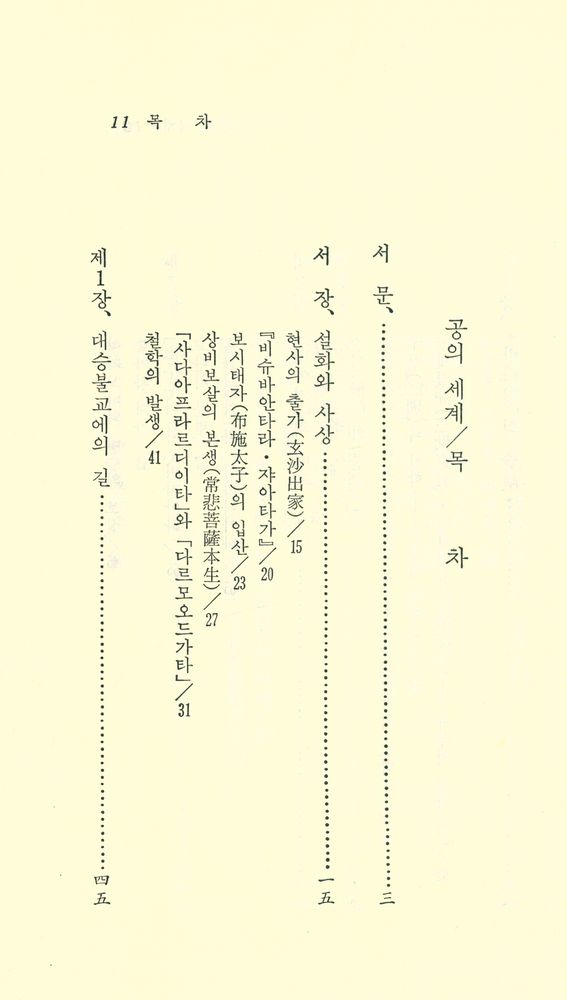 11 목 차
공의 세계/목 차
서 문、 …… 三
서 장、 설화와 사상 …… 一五
현사의 출가(玄沙出家)/15
『비슈바안타라・쟈아타가』/20
보시태자(布施太子)의 입산/23
상비보살의 본생(常悲菩薩本生)/27
「사다아프라르디이타」와 「다르모오드가타」/31
철학의 발생/41
제1장、 대승불교에의 길 …… 四五